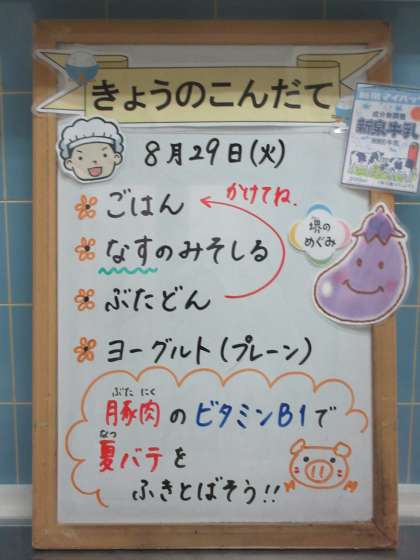 きょうのこんだて
8月29日(火)
ごはん
かけてね。
なすのみそしる
堺の
めぐみ
ぶたどん
ヨーグルト(プレーン)
ぶた にく
豚肉のビタミンB1で
なつ
夏バテを
ふきとばそう!!